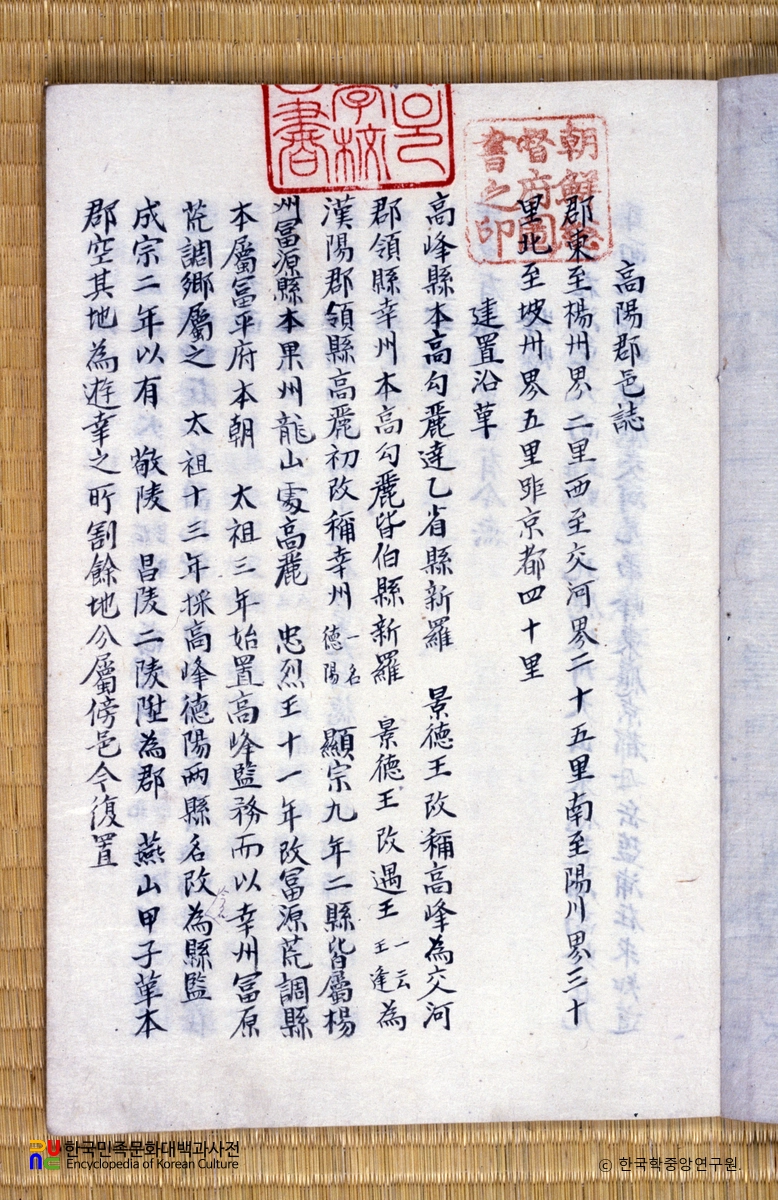 高陽郡邑誌
郡東至楊州界二里西至交河界二十五里南至陽川界三十
里北至坡州界五里距京都四十里
建置沿革
高峰縣本高勾麗達乙省縣新羅 景德王改稱高峰為交河
郡領縣幸州本高勾麗皆伯縣新羅 景德王改遇王一云王逢為
漢陽郡領縣高麗初改稱幸州一名德陽 顯宗九年二縣皆屬楊
州富源縣本果州龍山處高麗 忠烈王十一年改富源荒調縣
本屬富平府本朝 太祖三年始置高峰監務而以幸州富原
荒調鄉屬之 太祖十三年採高峰德陽兩縣名改為縣監
成宗二年以有 敬陵 昌陵二陵陞為郡 燕山甲子革本
郡空其地為遊幸之所割餘地分屬傍邑今復置
朝鮮總
督府圖
書之印
한국민족문화대백과사전
Encyclopedia of Korean Culture
© 한국학중앙연구원.